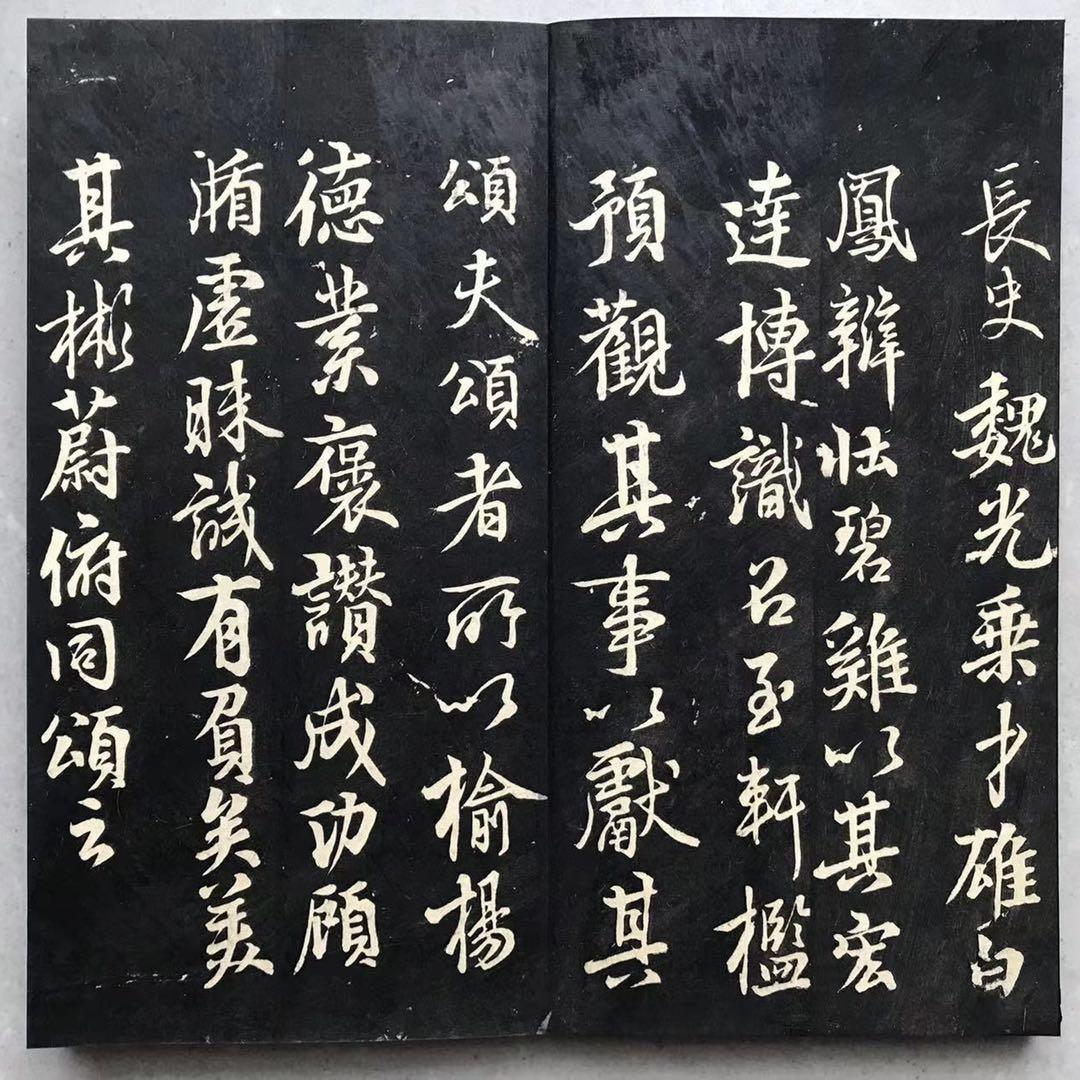 長史魏光乗才雄白
鳳辯壮碧雞以其宏
達博識召至軒檻
預觀其事以獻其
頌夫頌者所以榆楊
德業褒讚成功顧
循虛昧誠有負矣美
其彬蔚俯同頌云